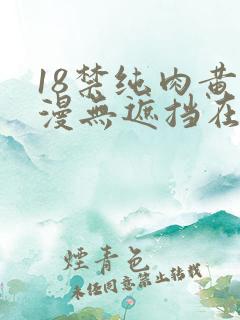 18禁纯肉黄
漫無遮挡在
煙青色
未经同意禁止转载